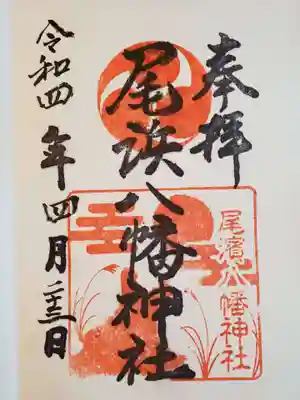 奉拝
尾浜八幡神社
尾濱八幡神社
令和四年四月二十三日